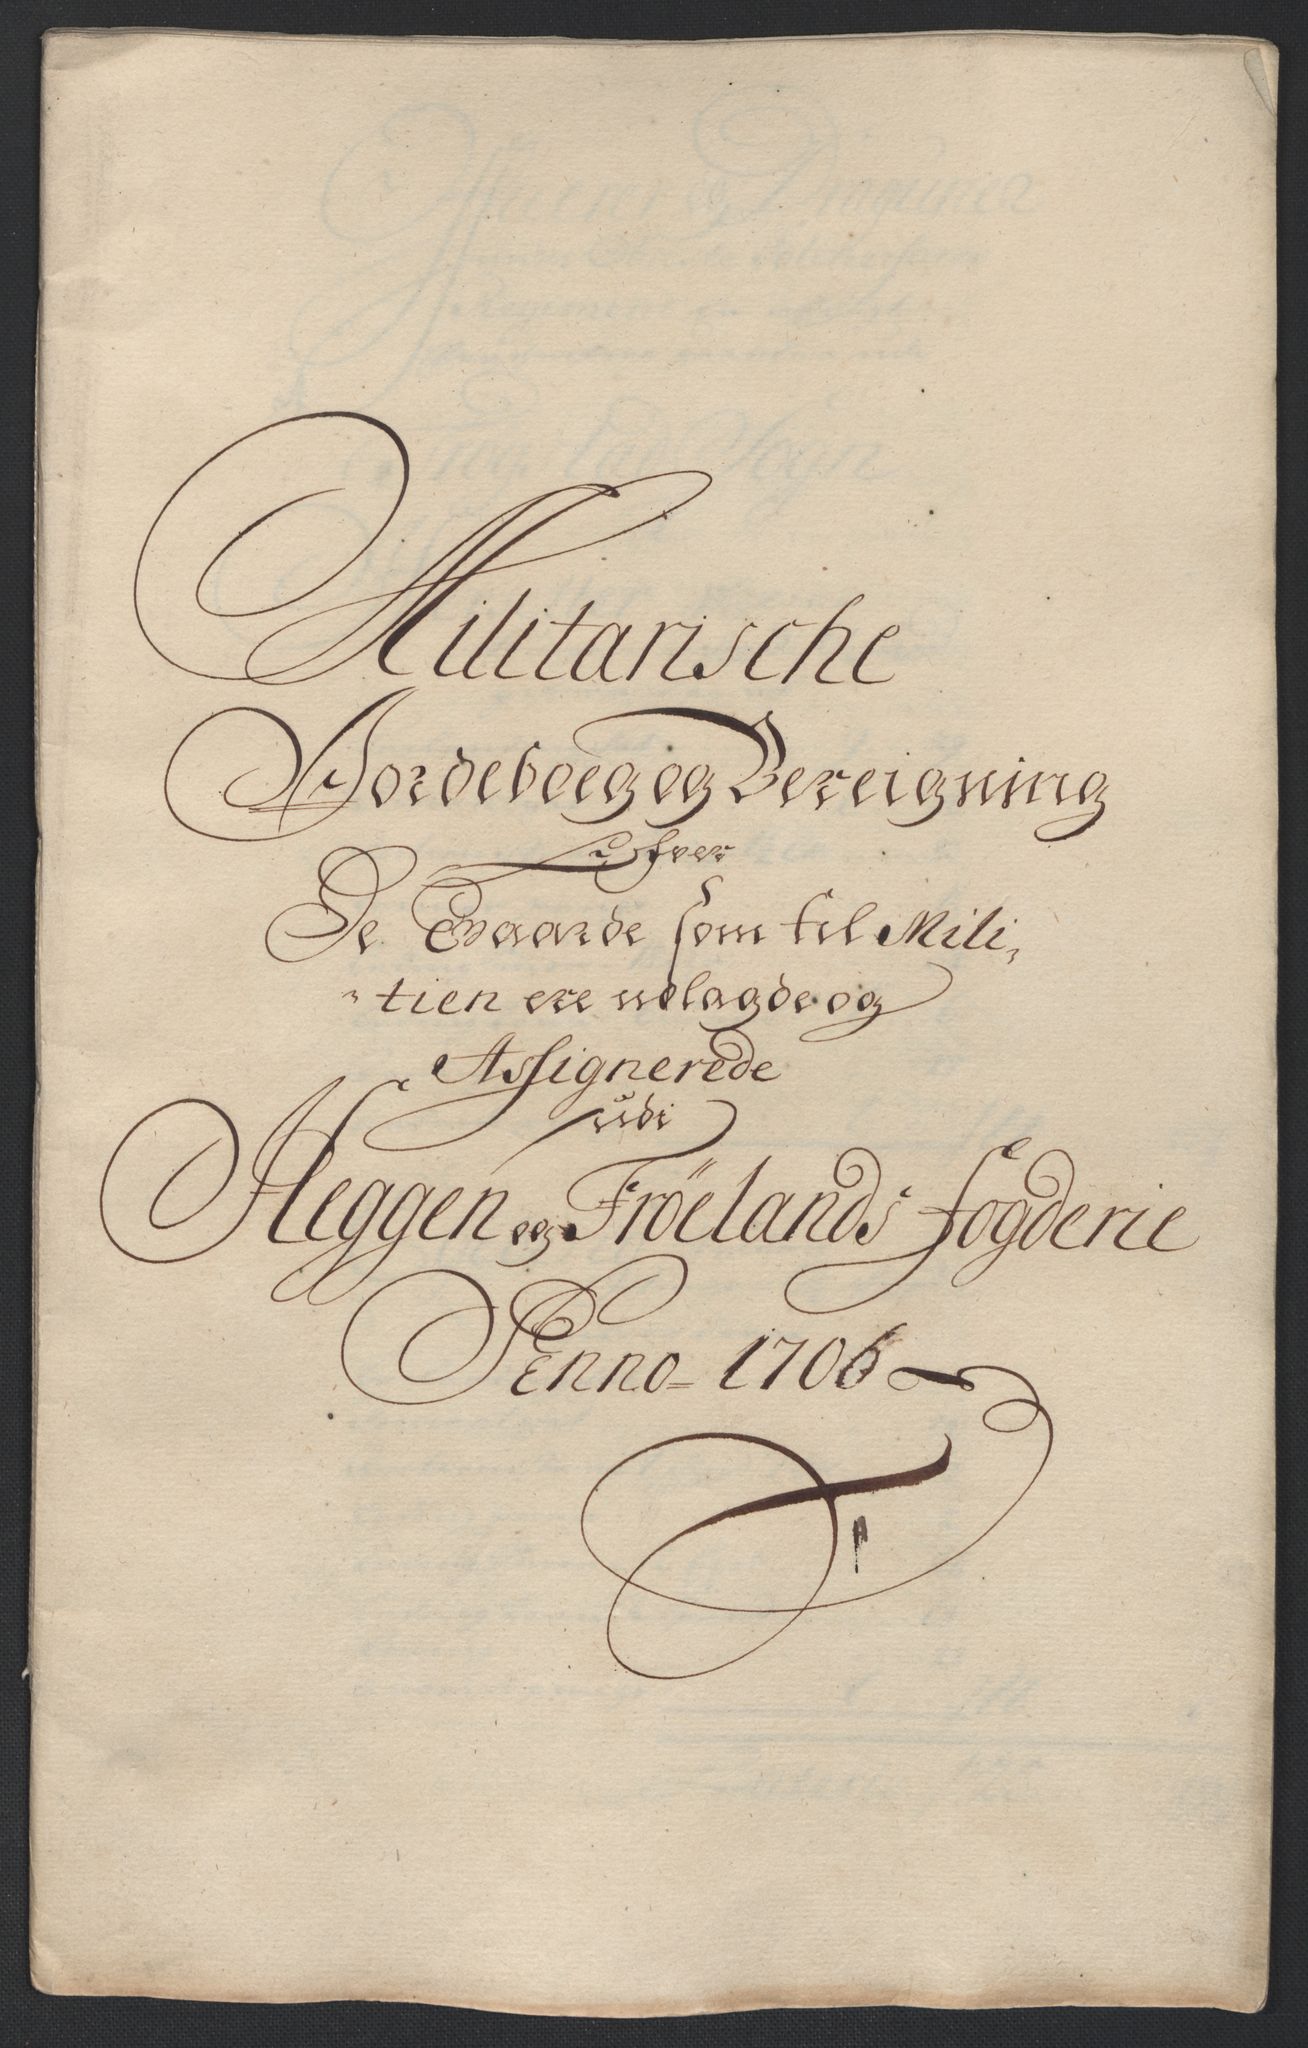 Militarische
Jordeboeg og Bereigning
Ofver
De Gaarde som til Mili-
tien ere udlagde og
Assignerede
udi
Heggen og Fröelands fogderie
Pro Anno 1706